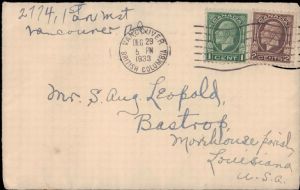 2774, 1st
Vancouver
VANCOUVER
DEC 29
5 PM
1933
BRITISH COLUMBIA
CANADA
1 CENT 1
CANADA
2 CENTS 2
Mr. S. Aug. Leopold,
Bastrop,
Morehouse parish,
Louisiana
U.S.A.